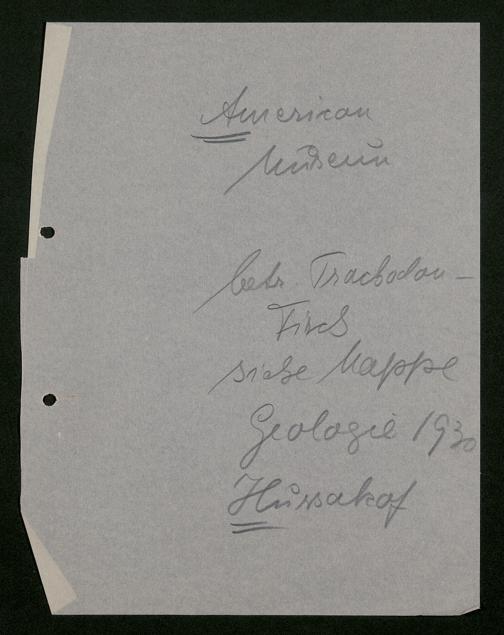 American
Museum
betr. Trachodon-
Fisch
siehe Mappe
Geologie 1930
Hussakof